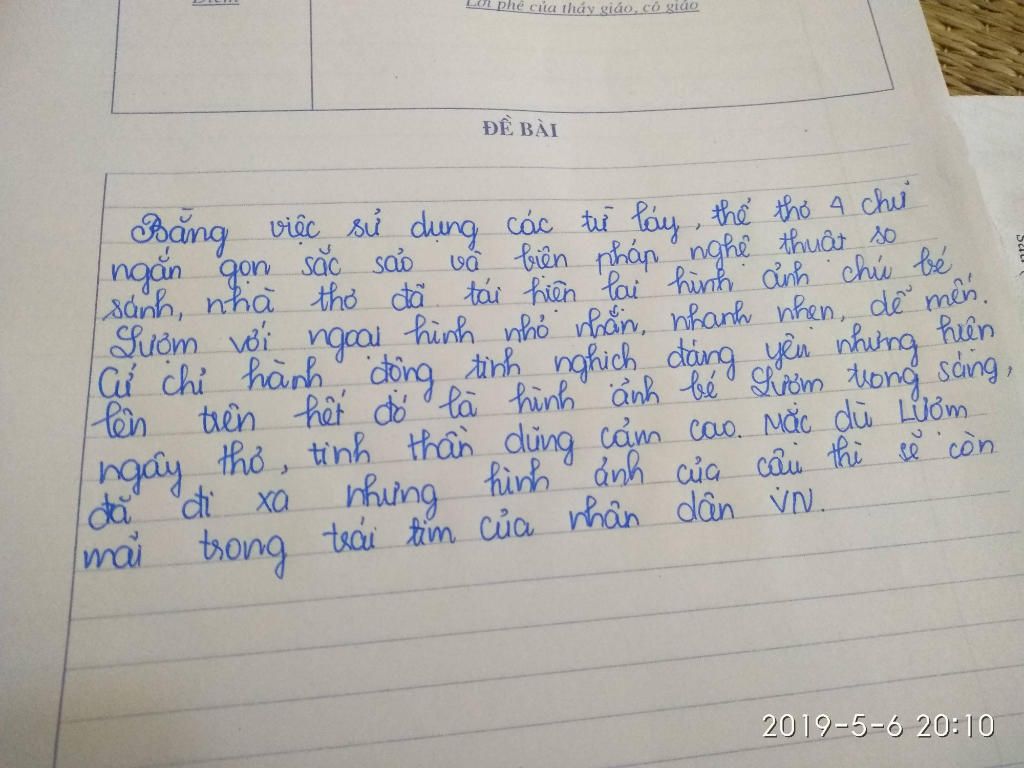 Điểm
Lời phê của thầy giáo, cô giáo
ĐỀ BÀI
Bằng việc sử dụng các từ láy, thể thơ 4 chữ
ngắn gọn sắc sảo và biện pháp nghệ thuật so
sánh, nhà thơ đã tái hiện lại hình ảnh chú bé
Lượm với ngoại hình nhỏ nhắn, nhanh nhẹn, dễ mến.
Cử chỉ hành động tinh nghịch đáng yêu nhưng hiện
lên trên hết đó là hình ảnh bé Lượm trong sáng,
ngây thơ, tinh thần dũng cảm cao. Mặc dù Lượm
đã đi xa nhưng hình ảnh của cậu thì sẽ còn
mãi trong trái tim của nhân dân VN.
2019-5-6 20:10